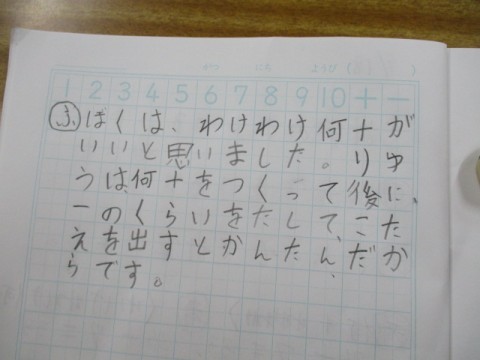 がつ にち ようび( )
1 2 3 4 5 6 7 8 9 10 + −
ふ ぼくは、わけわけ何十が
いいと思いました。りゆ
うは、何十をつくって後に、
一のくらいをたして、こた
えを出すとかんたん、だか
らです。